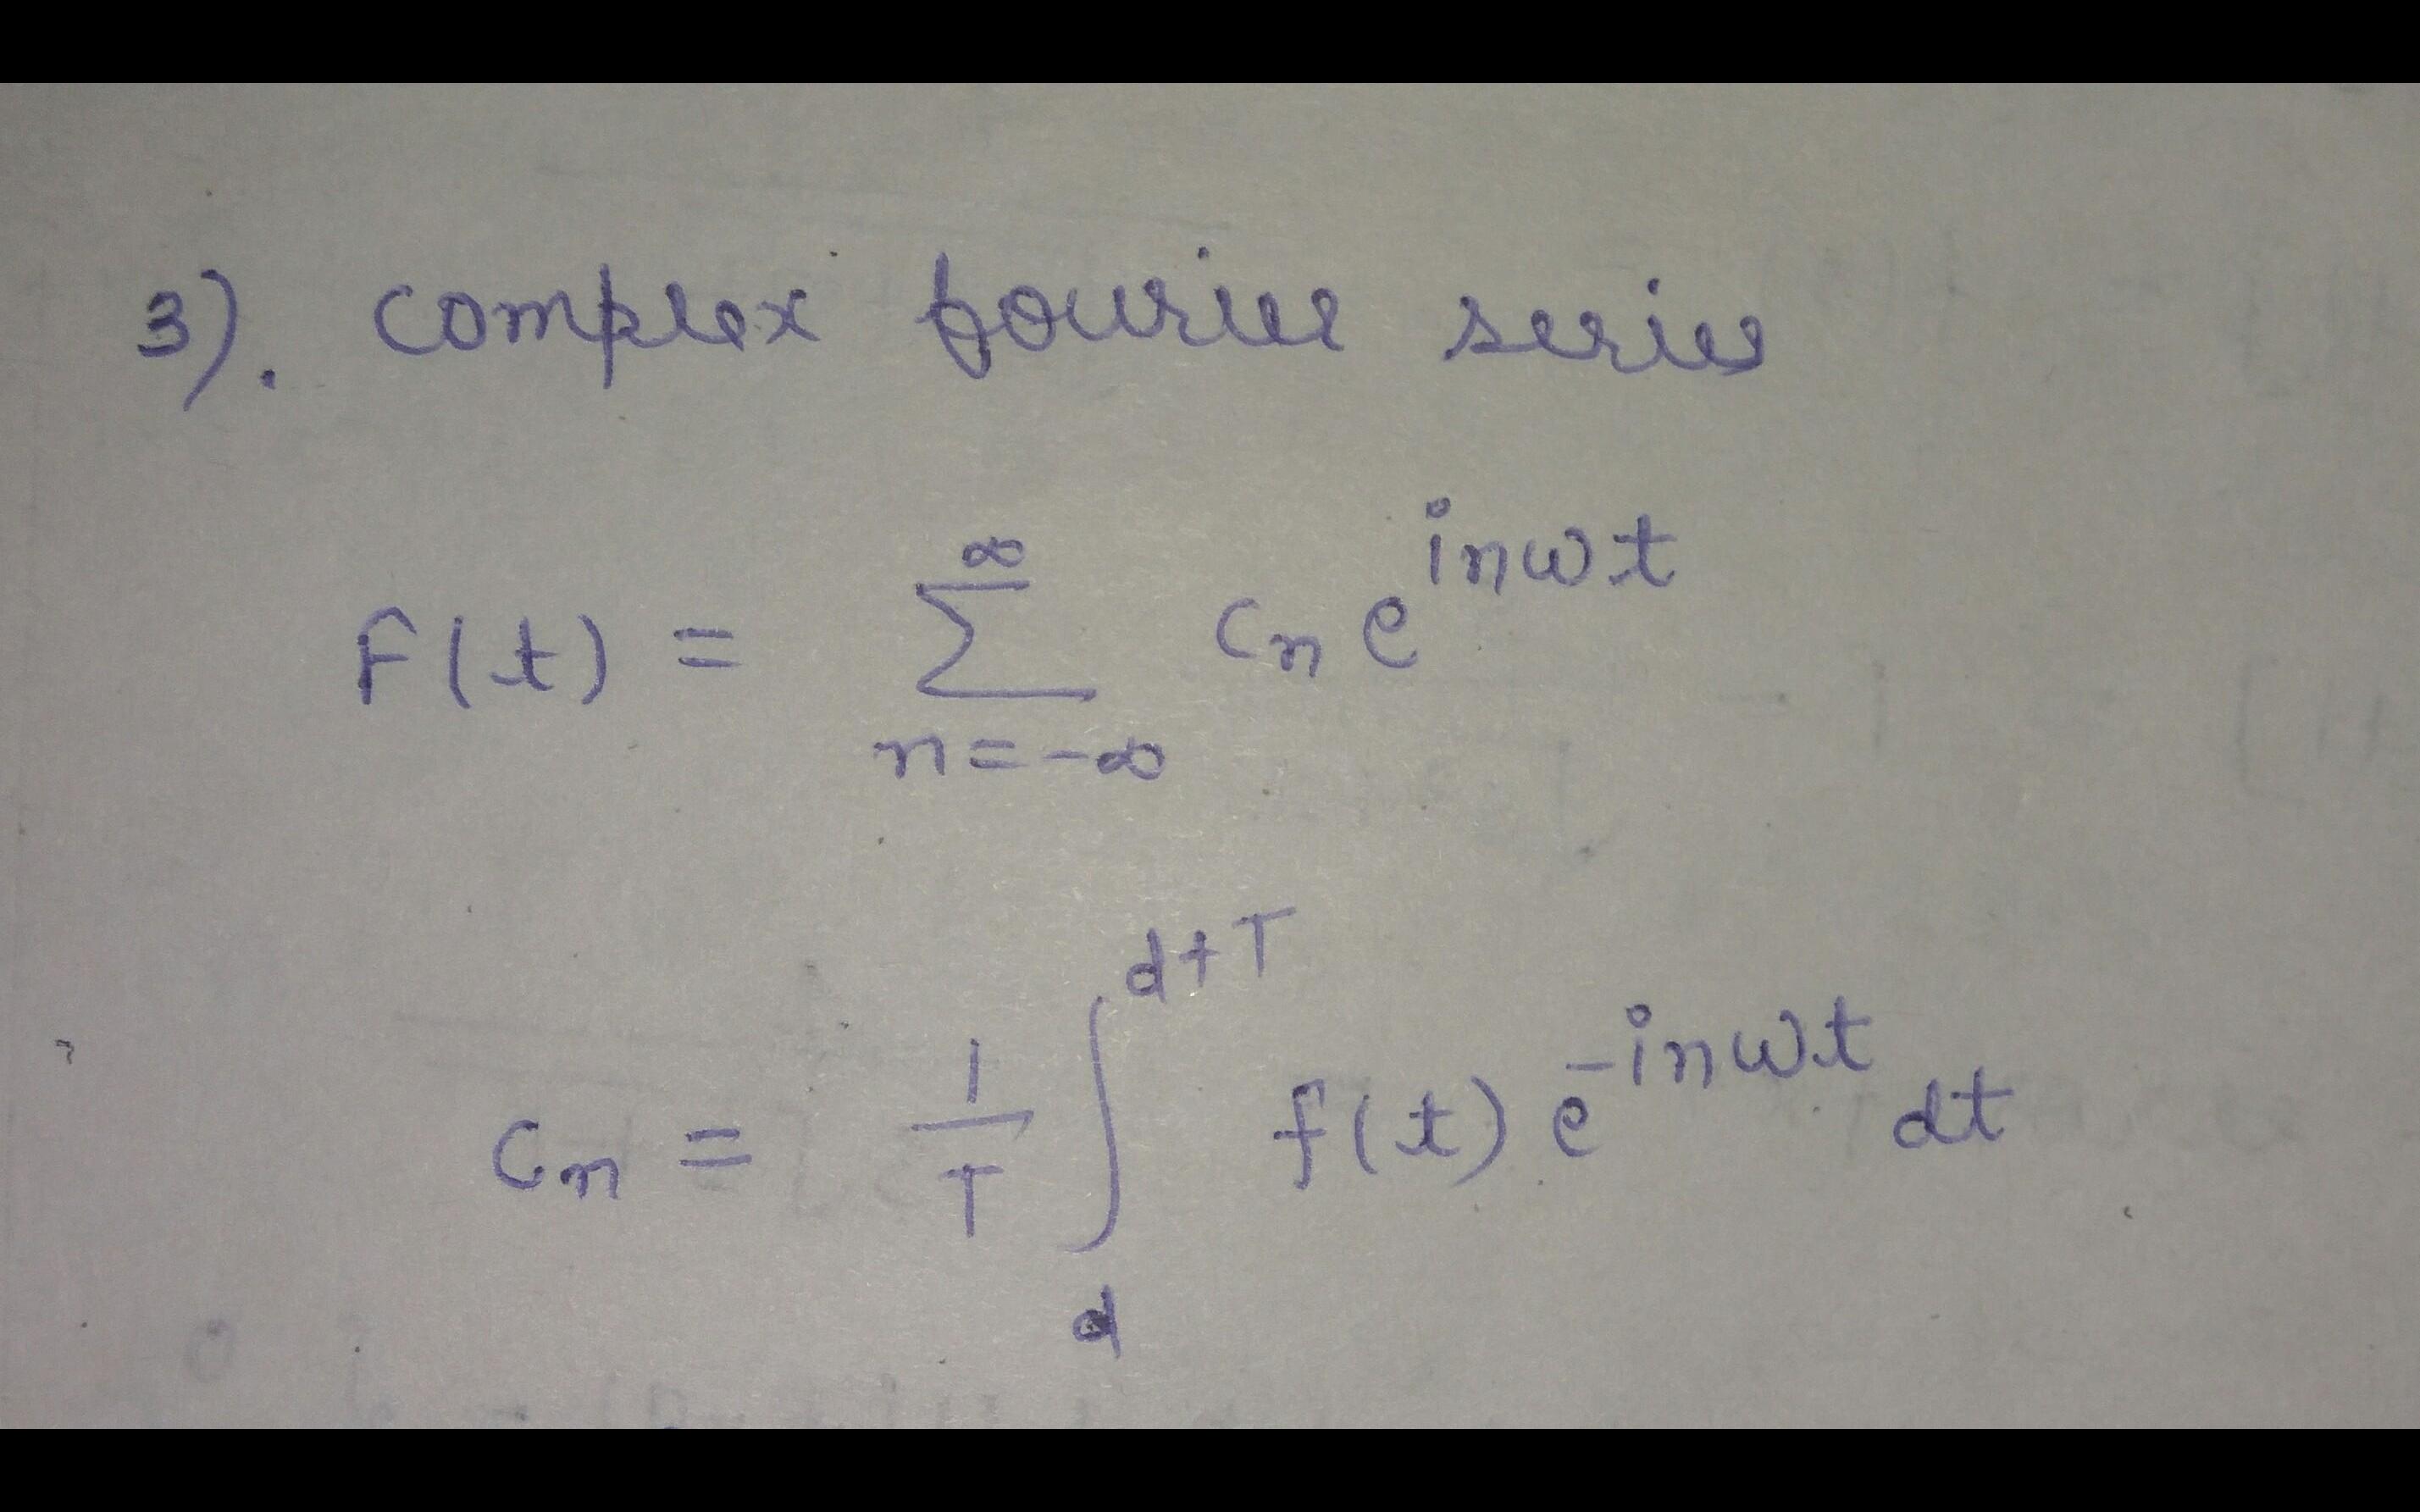 3). Complex fourier series
F(t) = ∞ Σ n=-∞ cn e^inωt
cn = 1/T ∫ d d+T f(t) e^-inωt dt